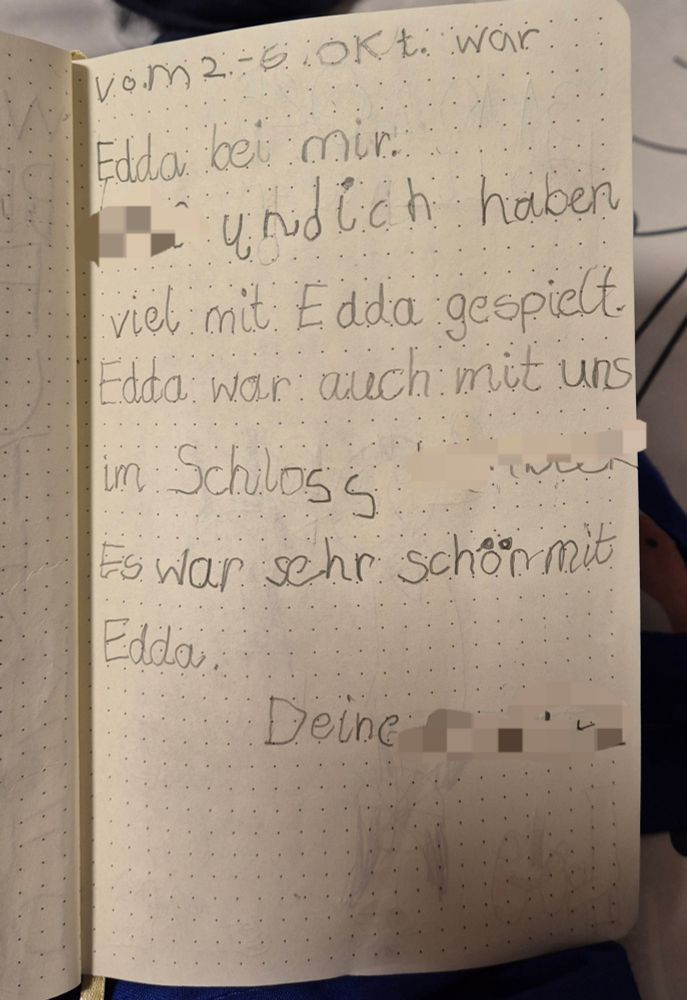 vom 2.-6. Okt. war
Edda bei mir.
und ich haben
viel mit Edda gespielt.
Edda war auch mit uns
im Schloss
Es war sehr schön mit
Edda.
Deine